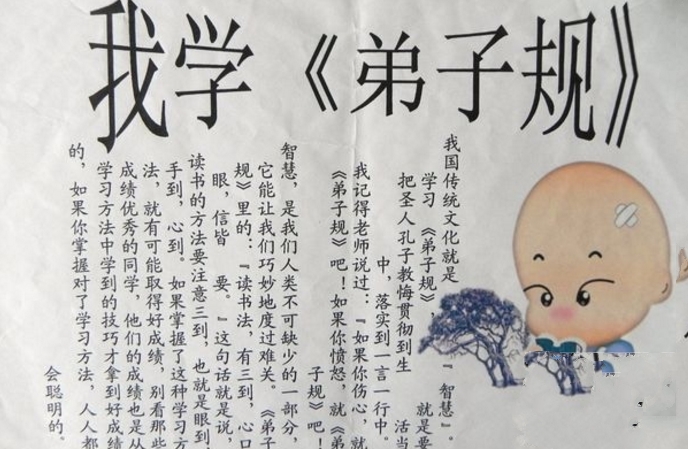 我学《弟子规》
我国传统文化就是『智慧』。
学习《弟子规》，就是要
把圣人孔子教悔贯彻到生活当
中，落实到一言一行中。
我记得老师说过：『如果你伤心，就
《弟子规》吧！如果你愤怒，就《弟
子规》吧！
智慧，是我们人类不可缺少的一部分，
它能让我们巧妙地度过难关。《弟子
规》里的：『读书法，有三到，心口
眼，信皆 要。』这句话就是说，
读书的方法要注意三到，也就是眼到，
手到，心到。如果掌握了这种学习方
法，就有可能取得好成绩，别看那些
成绩优秀的同学，他们的成绩也是从
学习方法中学到的技巧才拿到好成绩
的，如果你掌握对了学习方法，人人都
会聪明的。